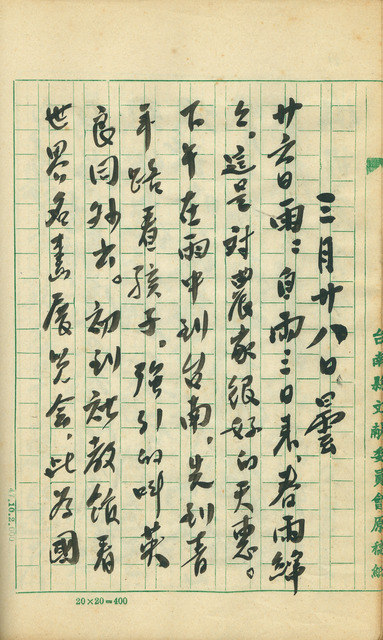 三月廿八日 雲
廿六日雨;自雨三日來,春雨綿
々,這是對農家很好的天惠。
下午在雨中到台南,先到青
年路看孩子,強引的叫英
良同外出。初到社教館看
世界名畫展覽會,此為國
台南縣文献委員會原稿紙
20×20=400